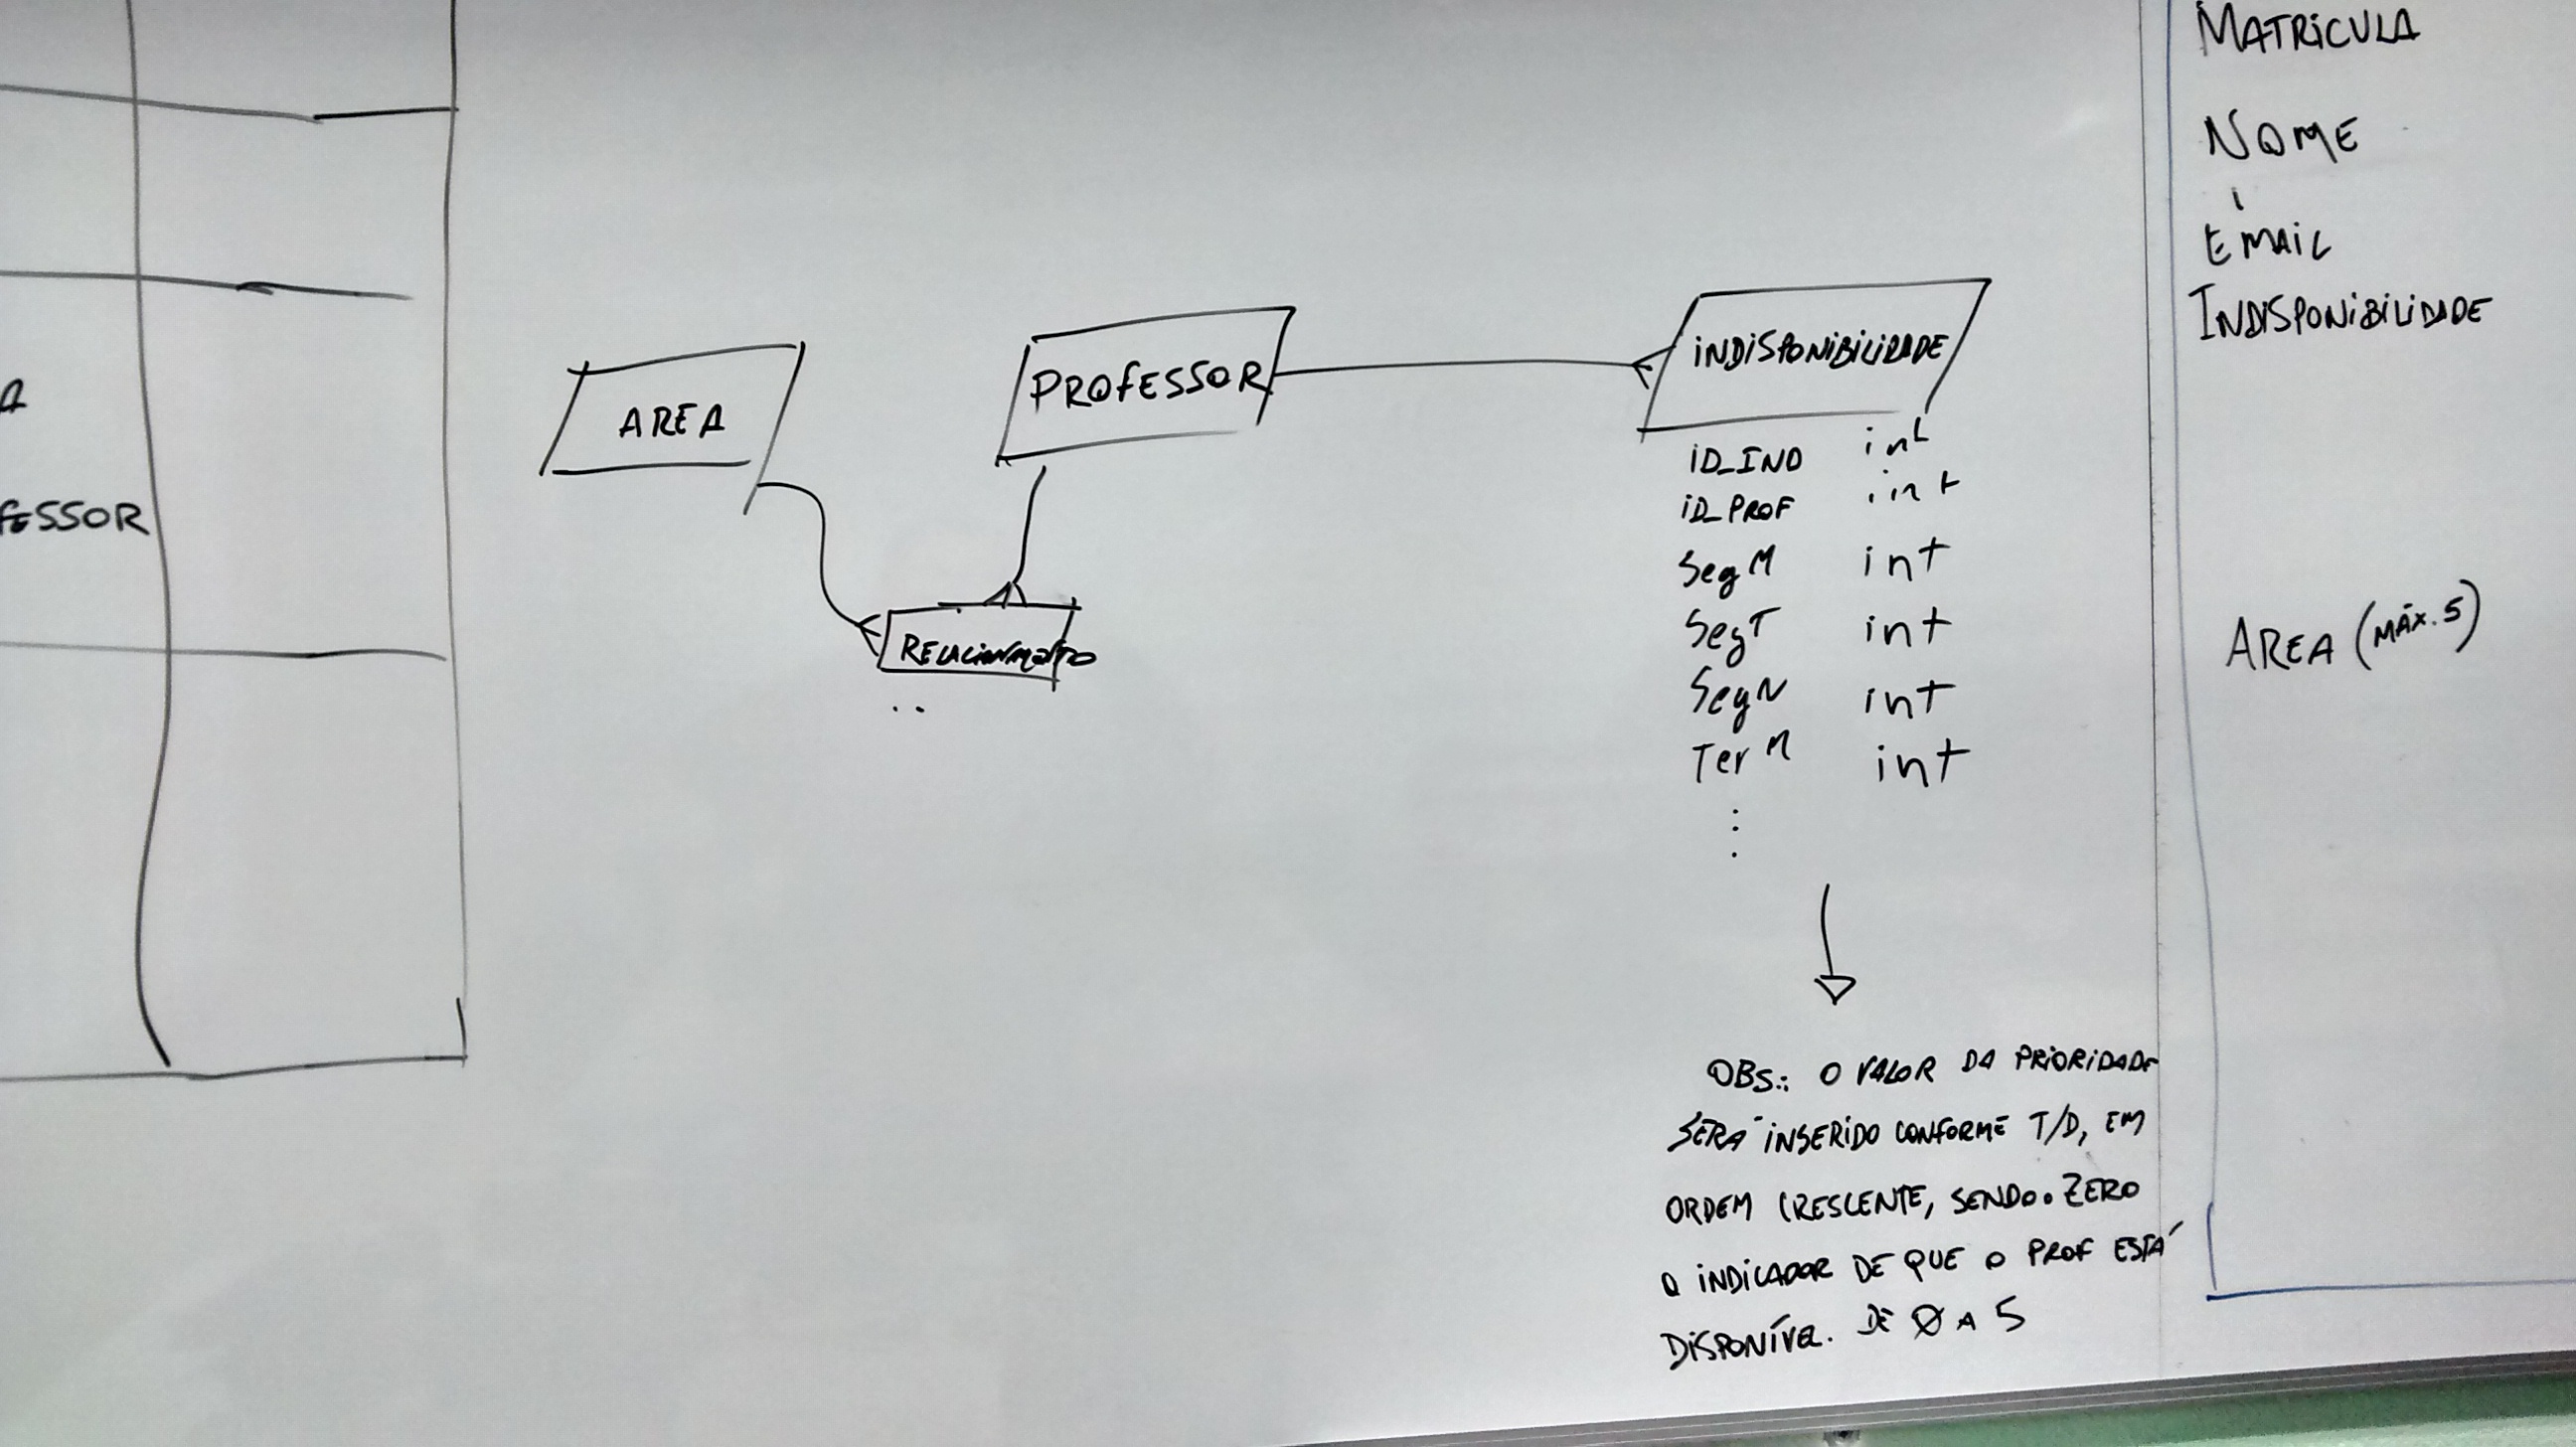 A
FESSOR
AREA
PROFESSOR
RELACIONAMENTO
..
INDISPONIBILIDADE
ID_IND int
ID_PROF int
SegM int
SegT int
SegN int
TerM int
OBS.: O VALOR DA PRIORIDADE
SERÁ INSERIDO CONFORME T/D, EM
ORDEM CRESCENTE, SENDO ZERO
O INDICADOR DE QUE O PROF ESTÁ
DISPONÍVEL. DE 0 A 5
MATRICULA
NOME
EMAIL
INDISPONIBILIDADE
AREA (MÁX. 5)